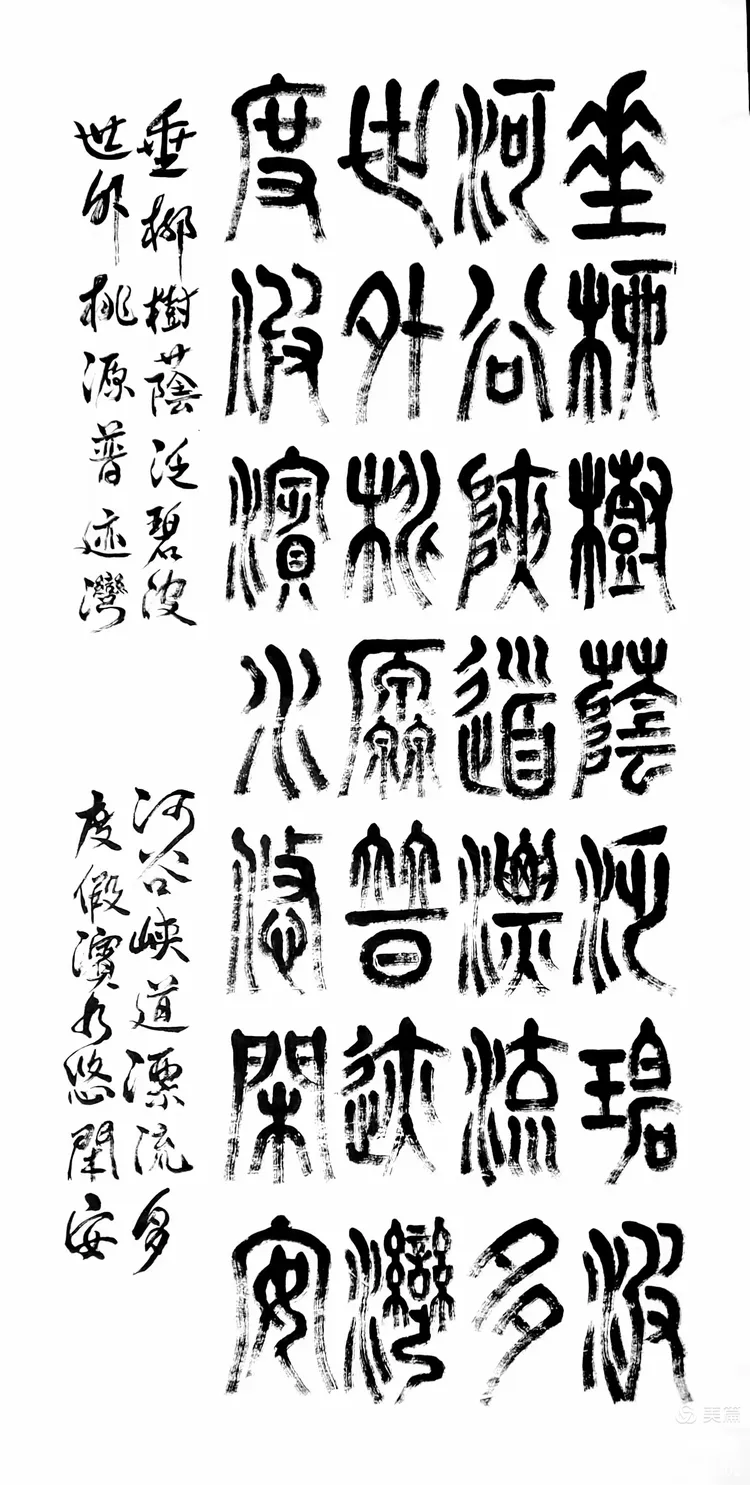 垂柳樹蔭泛碧波
河谷陜道漂流多
世外桃源普迹灣
度假濱水悠閑安
垂柳樹蔭泛碧波 河谷峽道漂流多
世外桃源普迹灣 度假濱水悠閑安
美篇